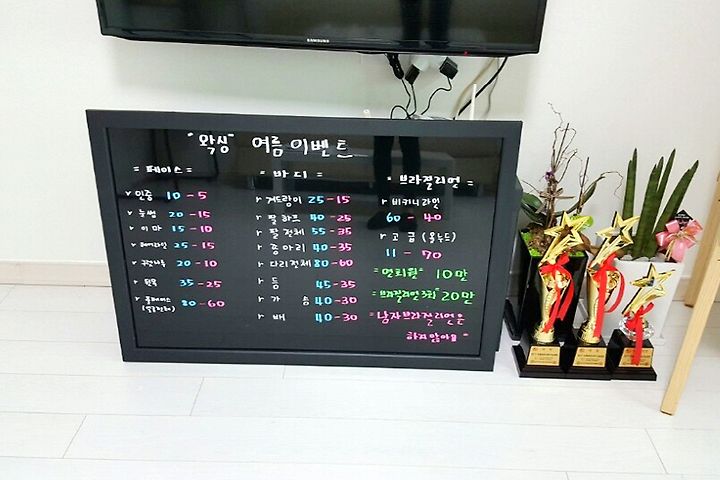 SAMSUNG
"왁싱" 여름 이벤트
= 페이스 =
r 인중 10 - 5
r 눈썹 20 - 15
r 이마 15 - 10
r 헤어라인 25 - 15
r 구렛나루 20 - 10
r 35 - 25
r 풀페이스 80 - 60
= 바디 =
r 겨드랑이 25 - 15
r 팔 하프 40 - 25
r 팔 전체 55 - 35
r 종아리 40 - 35
r 다리전체 80 - 60
r 등 45 - 35
r 가슴 40 - 30
r 배 40 - 30
= 브라질리언 =
r 비키니라인
60 - 40
r 고급 (올누드)
11 - 70
10만
"브라질리언3회" 20만
"남자브라질리언은
하지않아요"